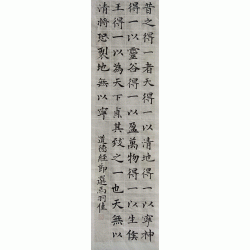 昔之得一者天得一以清地得一以寧神
得一以靈谷得一以盈萬物得一以生侯
王得一以為天下貞其致之一也天無以
清將恐裂地無以寧
道德經節選